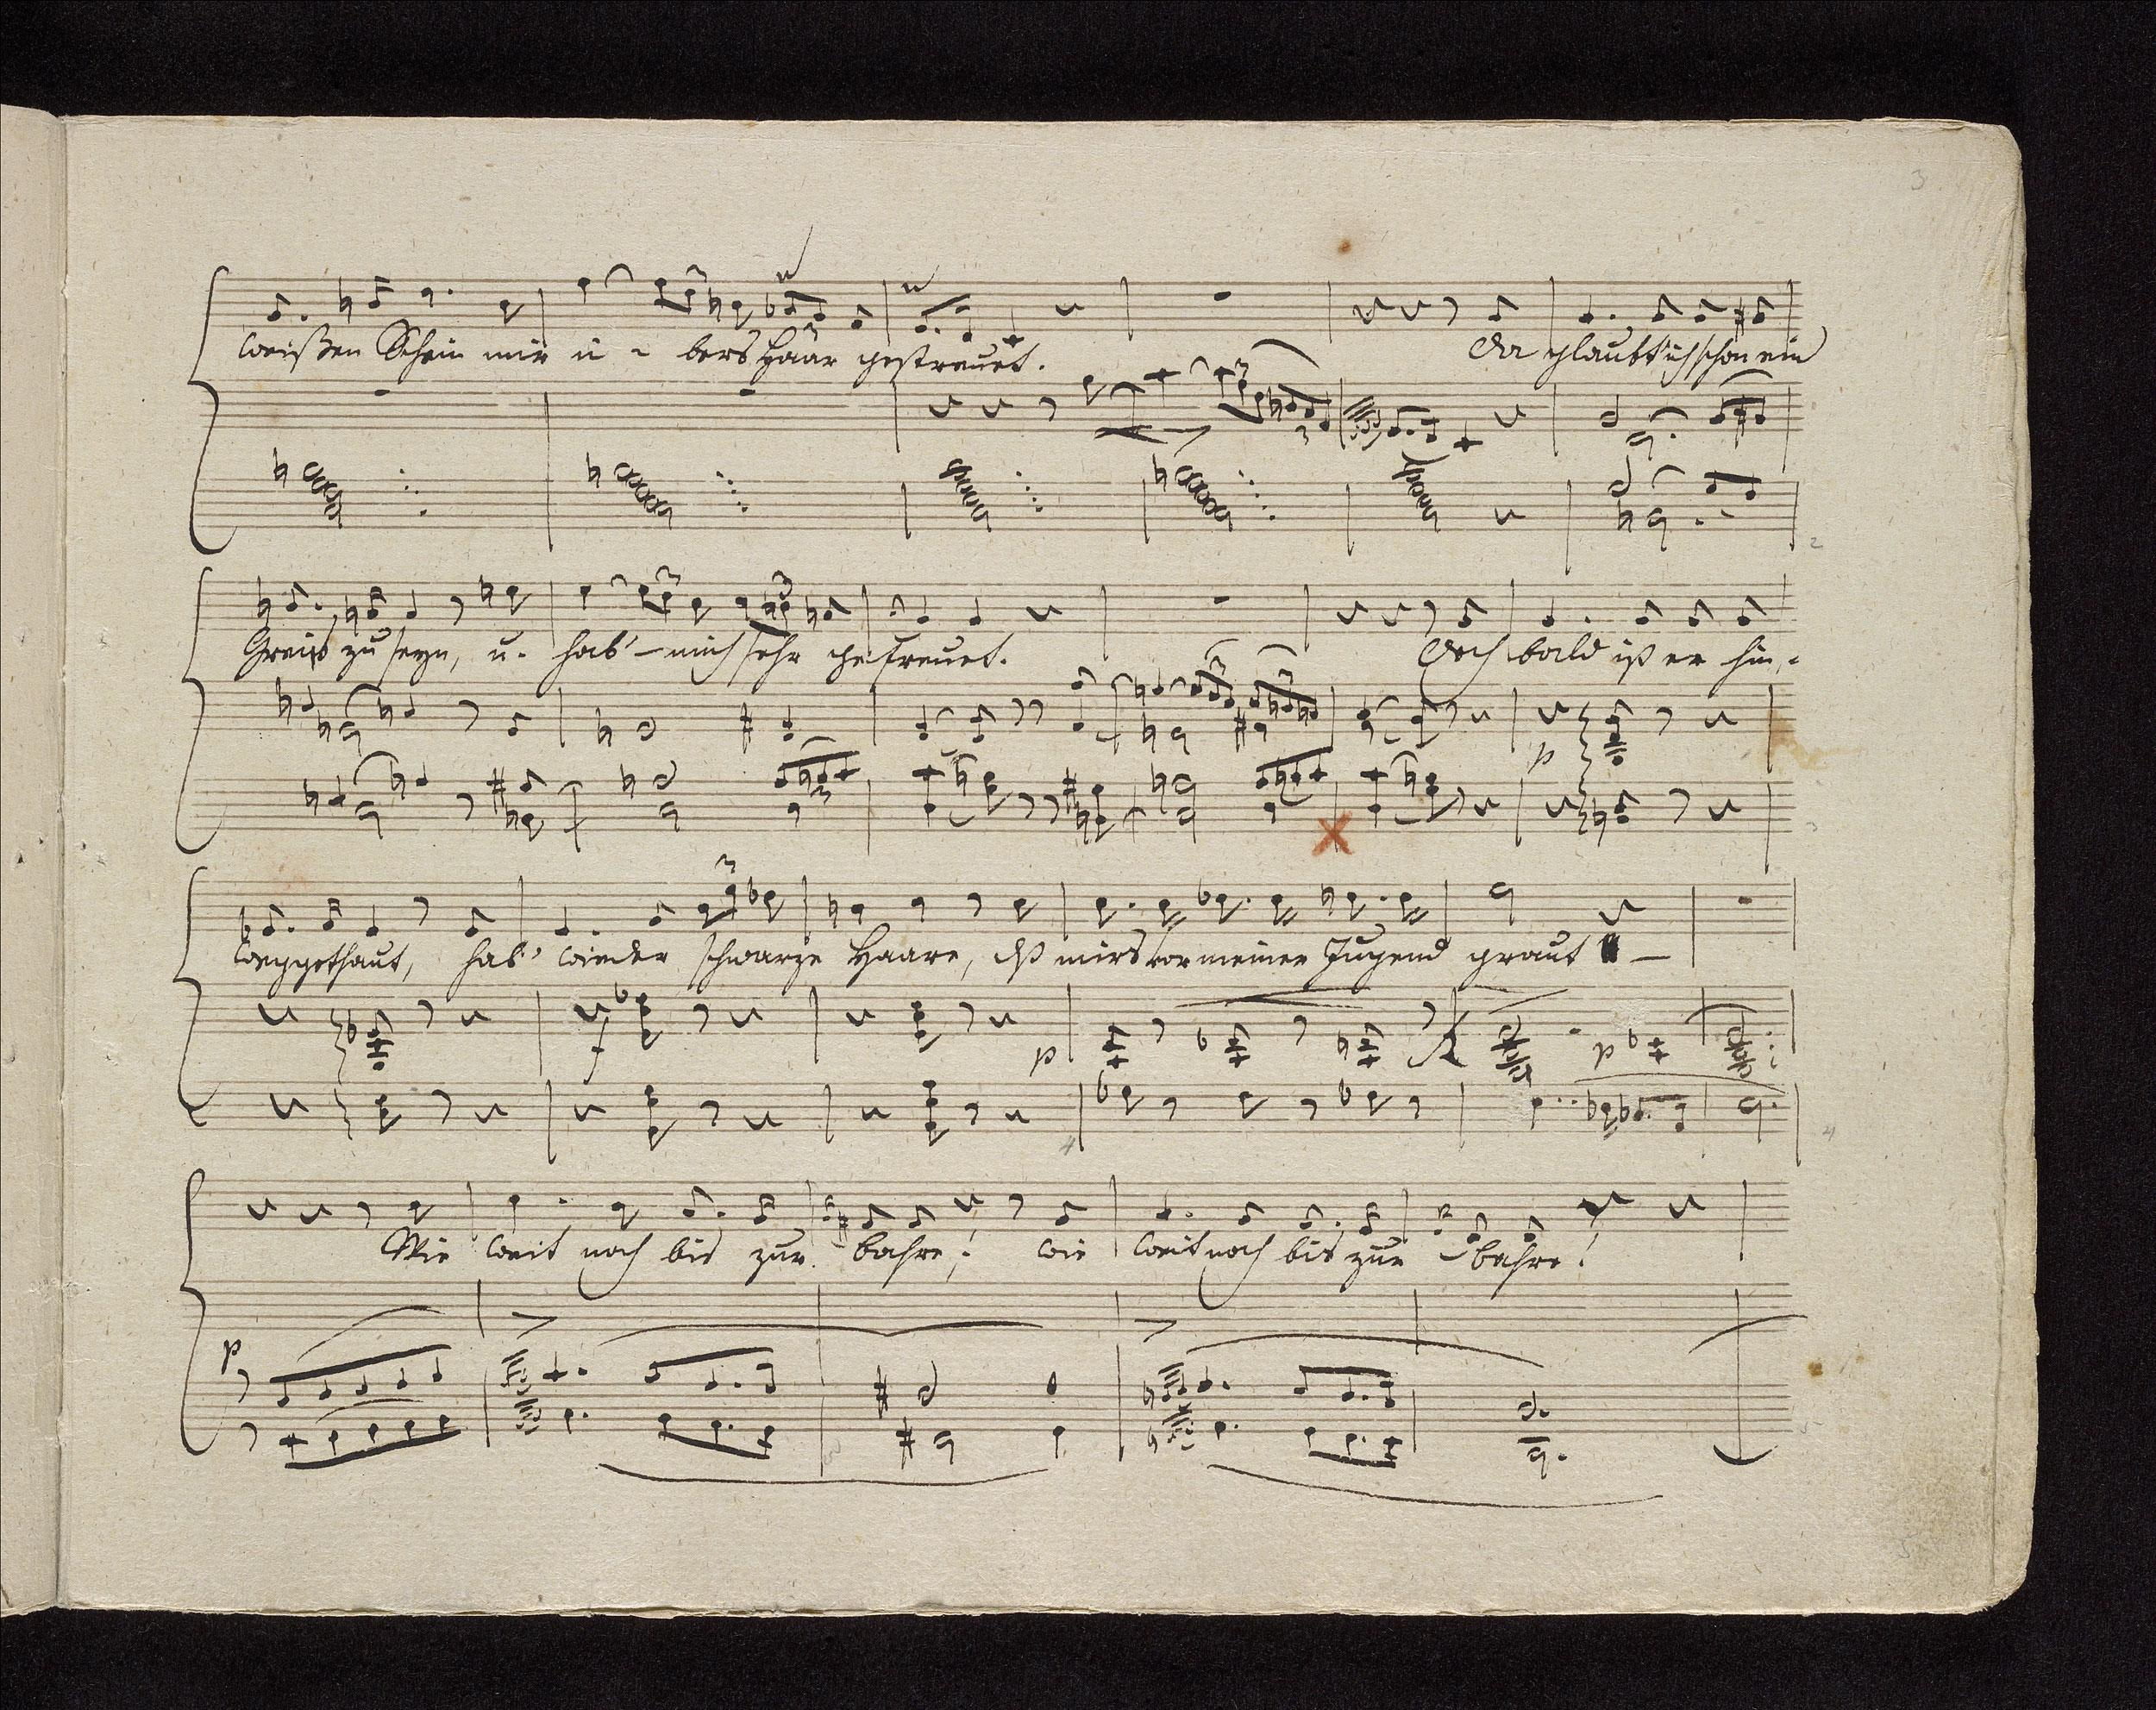 3
weißen Schein mir ü - bers Haar gestreuet. Da glaubt' ich schon ein
2
Greis zu seyn, u. hab' - mich sehr gefreuet. Doch bald ist er hin -
p
3
weggethaut, hab' wieder schwarze Haare, dß mirs vor meiner Jugend graut —
f p p
4 4
Wie weit noch bis zur - bahre! wie weit noch bis zur - bahre!
p
5
5